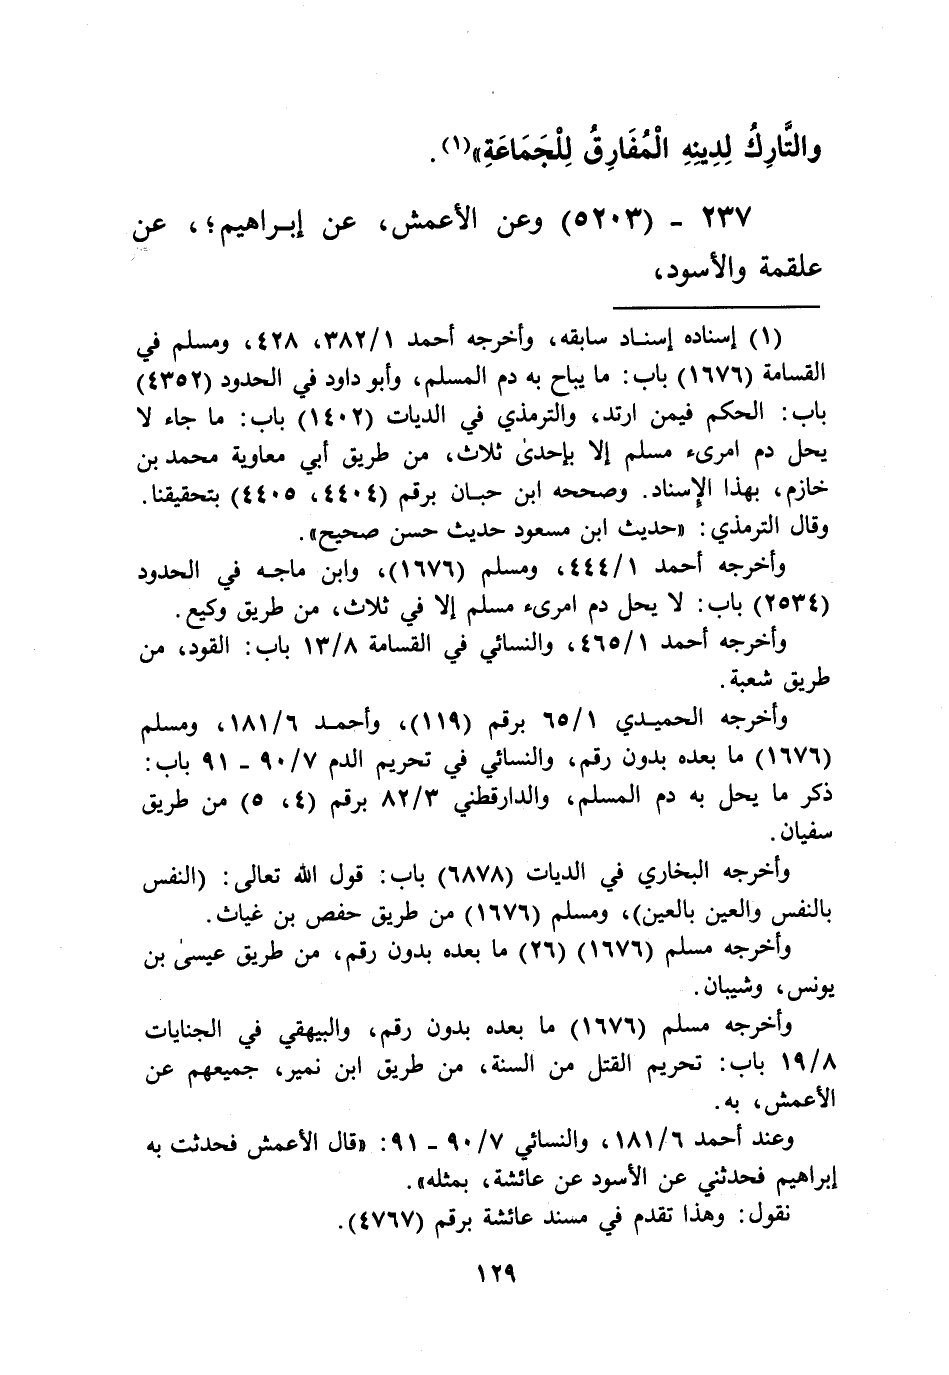 والتَّارِكُ لِدِينِهِ الْمُفَارِقُ لِلْجَمَاعَةِ»(١).
٢٣٧ - (٥٢٠٣) وعن الأعمش، عن إبـراهيم؛، عن
علقمة والأسود،
(١) إسناده إسنـاد سابقه، وأخرجه أحمد ٣٨٢/١، ٤٢٨، ومسلم في
القسامة (١٦٧٦) باب: ما يباح به دم المسلم، وأبو داود في الحدود (٤٣٥٢)
باب: الحكم فيمن ارتد، والترمذي في الديات (١٤٠٢) باب: ما جاء لا
يحل دم امرىء مسلم إلا بإحدىٰ ثلاث، من طريق أبي معاوية محمد بن
خازم، بهذا الإسناد. وصححه ابن حبـان برقم (٤٤٠٤، ٤٤٠٥) بتحقيقنا.
وقال الترمذي: «حديث ابن مسعود حديث حسن صحيح».
وأخرجه أحمد ٤٤٤/١، ومسلم (١٦٧٦)، وابن ماجـه في الحدود
(٢٥٣٤) باب: لا يحل دم امرىء مسلم إلا في ثلاث، من طريق وكيع.
وأخرجه أحمد ٤٦٥/١، والنسائي في القسامة ١٣/٨ باب: القود، من
طريق شعبة.
وأخرجه الحميـدي ٦٥/١ برقم (١١٩)، وأحمـد ١٨١/٦، ومسلم
(١٦٧٦) ما بعده بدون رقم، والنسائي في تحريم الدم ٩٠/٧ - ٩١ باب:
ذكر ما يحل به دم المسلم، والدارقطني ٨٢/٣ برقم (٤، ٥) من طريق
سفيان.
وأخرجه البخاري في الديات (٦٨٧٨) باب: قول الله تعالى: (النفس
بالنفس والعين بالعين)، ومسلم (١٦٧٦) من طريق حفص بن غياث.
وأخرجه مسلم (١٦٧٦) (٢٦) ما بعده بدون رقم، من طريق عيسىٰ بن
يونس، وشيبان.
وأخرجه مسلم (١٦٧٦) ما بعده بدون رقم، والبيهقي في الجنايات
١٩/٨ باب: تحريم القتل من السنة، من طريق ابن نمير، جميعهم عن
الأعمش، به.
وعند أحمد ١٨١/٦، والنسائي ٩٠/٧ - ٩١: «قال الأعمش فحدثت به
إبراهيم فحدثني عن الأسود عن عائشة، بمثله».
نقول: وهذا تقدم في مسند عائشة برقم (٤٧٦٧).
١٢٩